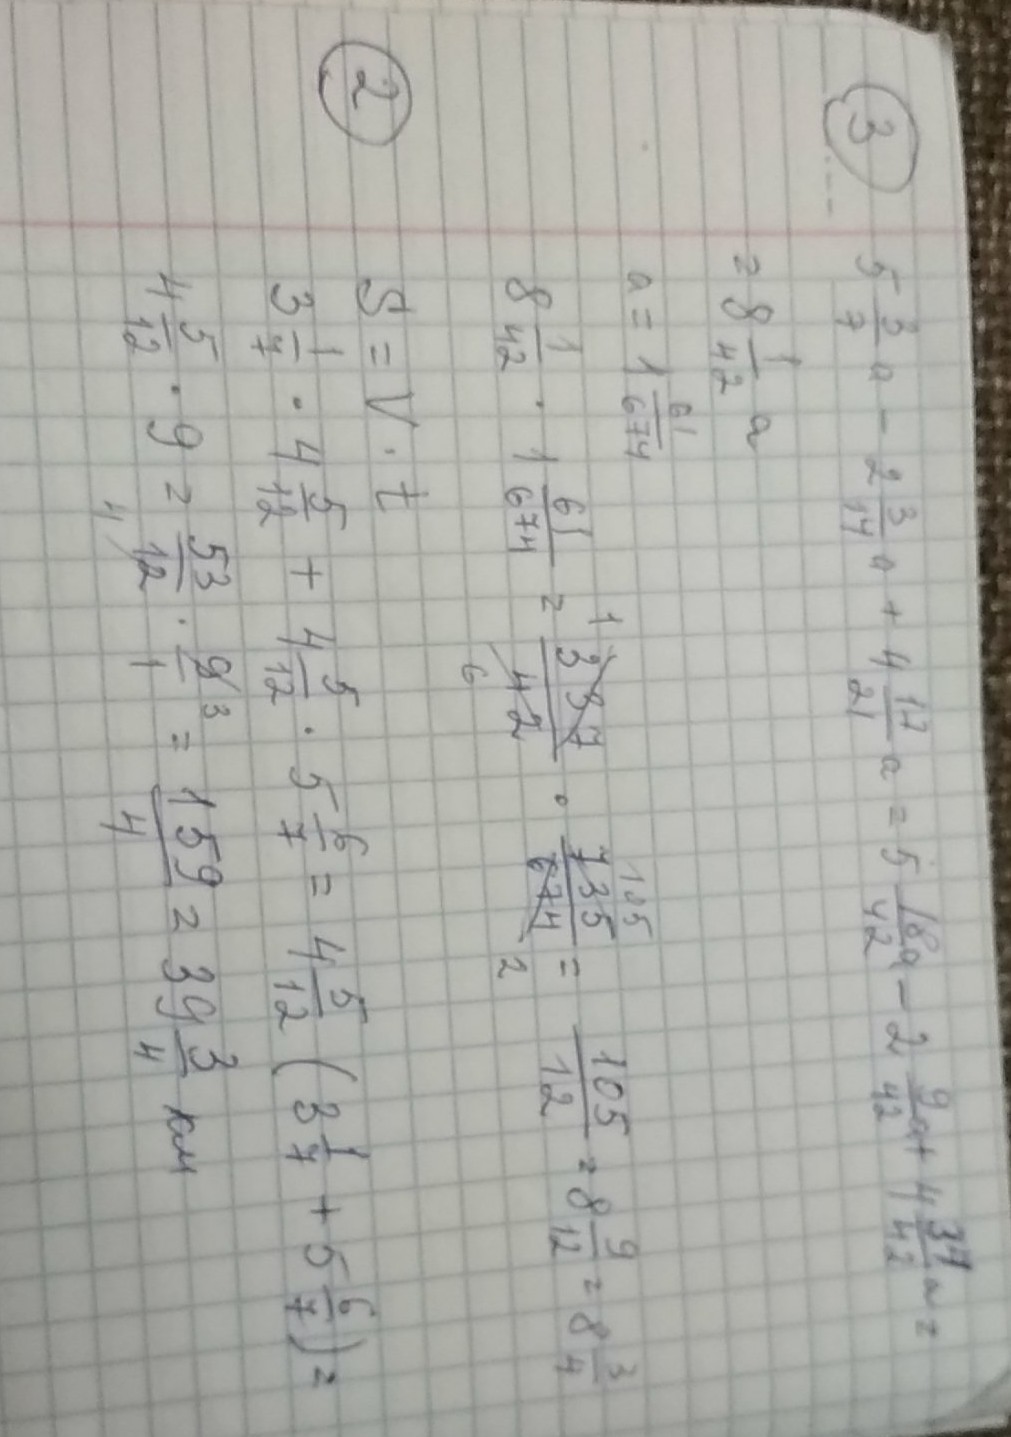 ③ 5 3/7 a - 2 3/14 a + 4 17/21 a = 5 18/42 a - 2 9/42 a + 4 34/42 a =
= 8 1/42 a
a = 1 61/674
8 1/42 · 1 61/674 = 337/42 · 735/674 = 105/12 = 8 9/12 = 8 3/4
1 105
6 2
② S = V · t
3 1/7 · 4 5/12 + 4 5/12 · 5 6/7 = 4 5/12 (3 1/7 + 5 6/7) =
4 5/12 · 9 = 53/12 · 9/1 = 159/4 = 39 3/4 км
4 3